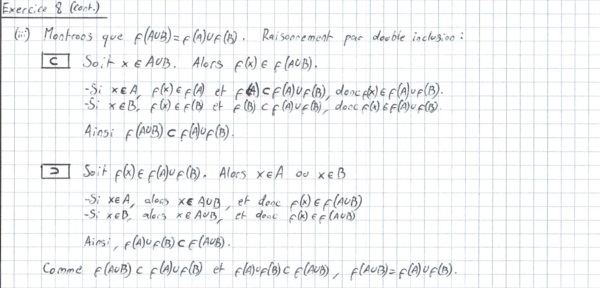 Exercice 8 (cont.)
(ii) Montrons que f(A∪B)=f(A)∪f(B). Raisonnement par double inclusion :
⊂ Soit x ∈ A∪B. Alors f(x) ∈ f(A∪B).
-Si x∈A, f(x) ∈ f(A) et f(A) ⊂ f(A)∪f(B), donc f(x) ∈ f(A)∪f(B).
-Si x∈B, f(x) ∈ f(B) et f(B) ⊂ f(A)∪f(B), donc f(x) ∈ f(A)∪f(B).
Ainsi f(A∪B) ⊂ f(A)∪f(B).
⊃ Soit f(x) ∈ f(A)∪f(B). Alors x∈A ou x∈B
-Si x∈A, alors x∈ A∪B, et donc f(x) ∈ f(A∪B)
-Si x∈B, alors x∈A∪B, et donc f(x) ∈ f(A∪B)
Ainsi, f(A)∪f(B) ⊂ f(A∪B).
Comme f(A∪B) ⊂ f(A)∪f(B) et f(A)∪f(B) ⊂ f(A∪B), f(A∪B)=f(A)∪f(B).